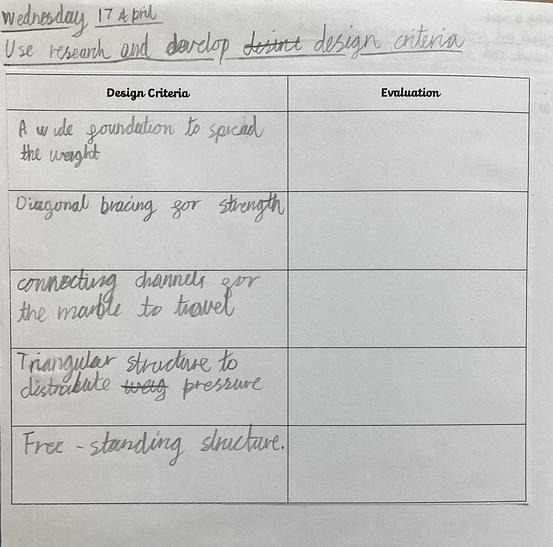 Wednesday 17 April
Use research and develop desint design criteria
Design Criteria
Evaluation
A wide foundation to spread
the weight
Diagonal bracing for strength
connecting channels for
the marble to travel
Triangular structure to
distrabute weig pressure
Free-standing structure.